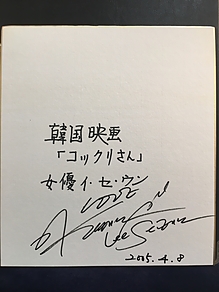 韓国映画
「コックリさん」
女優イ・セ・ウン
LOVE
Lee Se Eun
2005.4.8